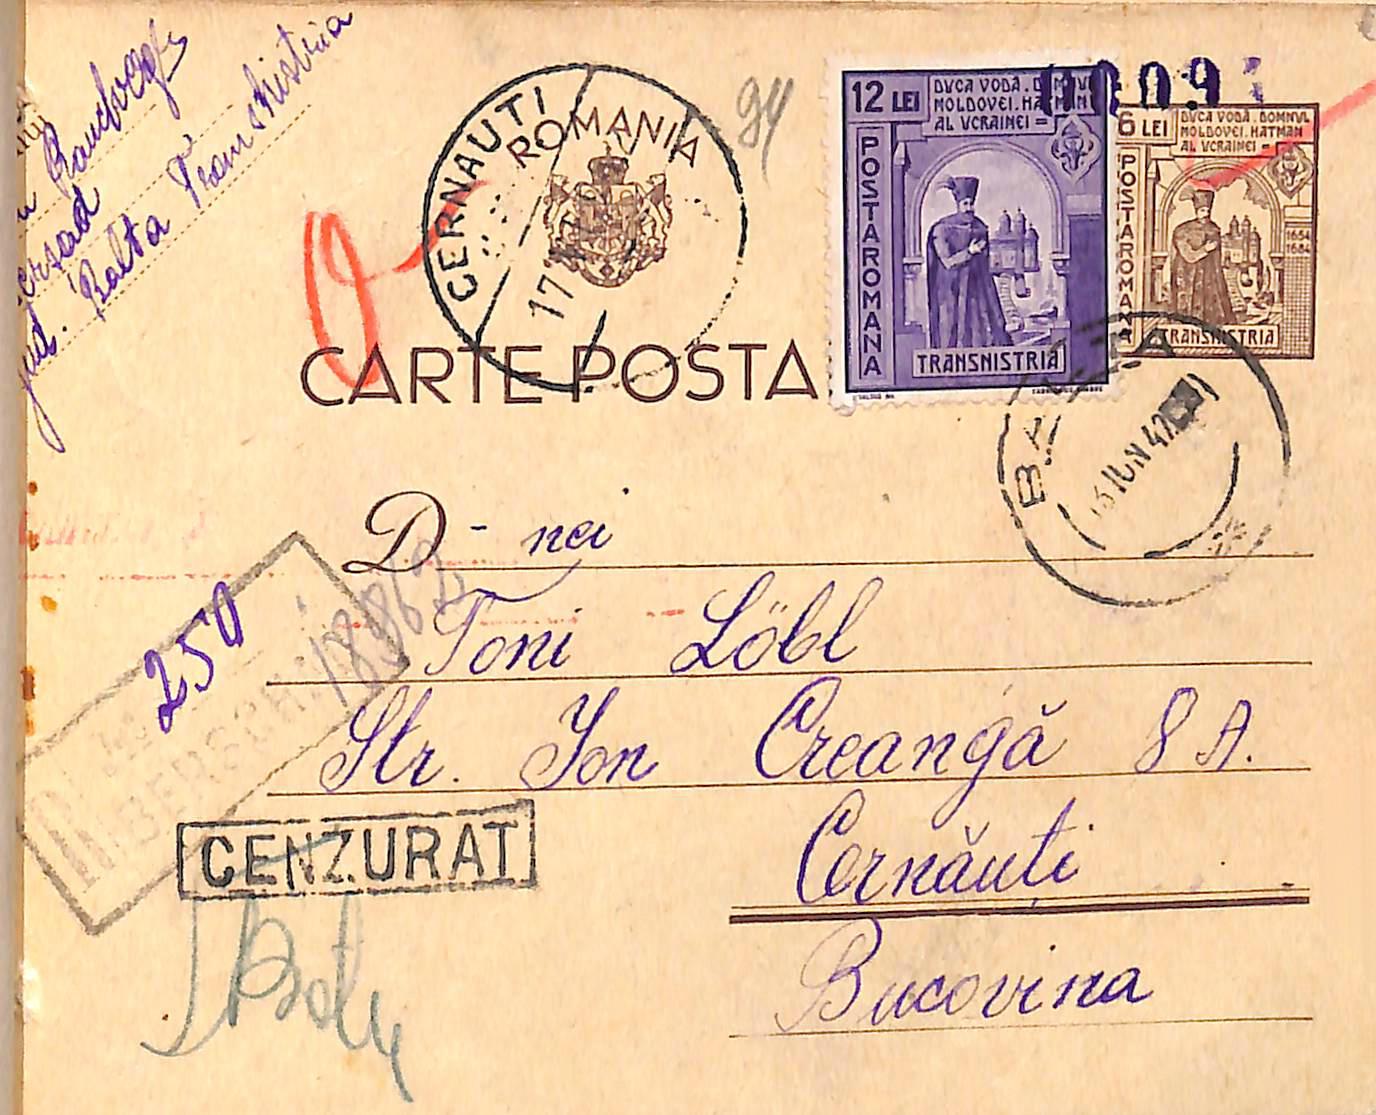 Balta Transnistria
jud.
CERNAUTI
17
ROMANIA
94
12 LEI
DUCA VODA. DOMNUL
MOLDOVEI. HATMAN
AL UCRAINEI =
POSTA ROMANA
TRANSNISTRIA
6 LEI
DUCA VODA. DOMNUL
MOLDOVEI. HATMAN
AL UCRAINEI =
POSTA ROMANA
1654
1684
TRANSNISTRIA
CARTE POSTA
IUN 42
D-nei
Toni Löbl
18862
250
Str. Ion Creangă 8 A.
R
CENZURAT
Cernăuți
Bucovina